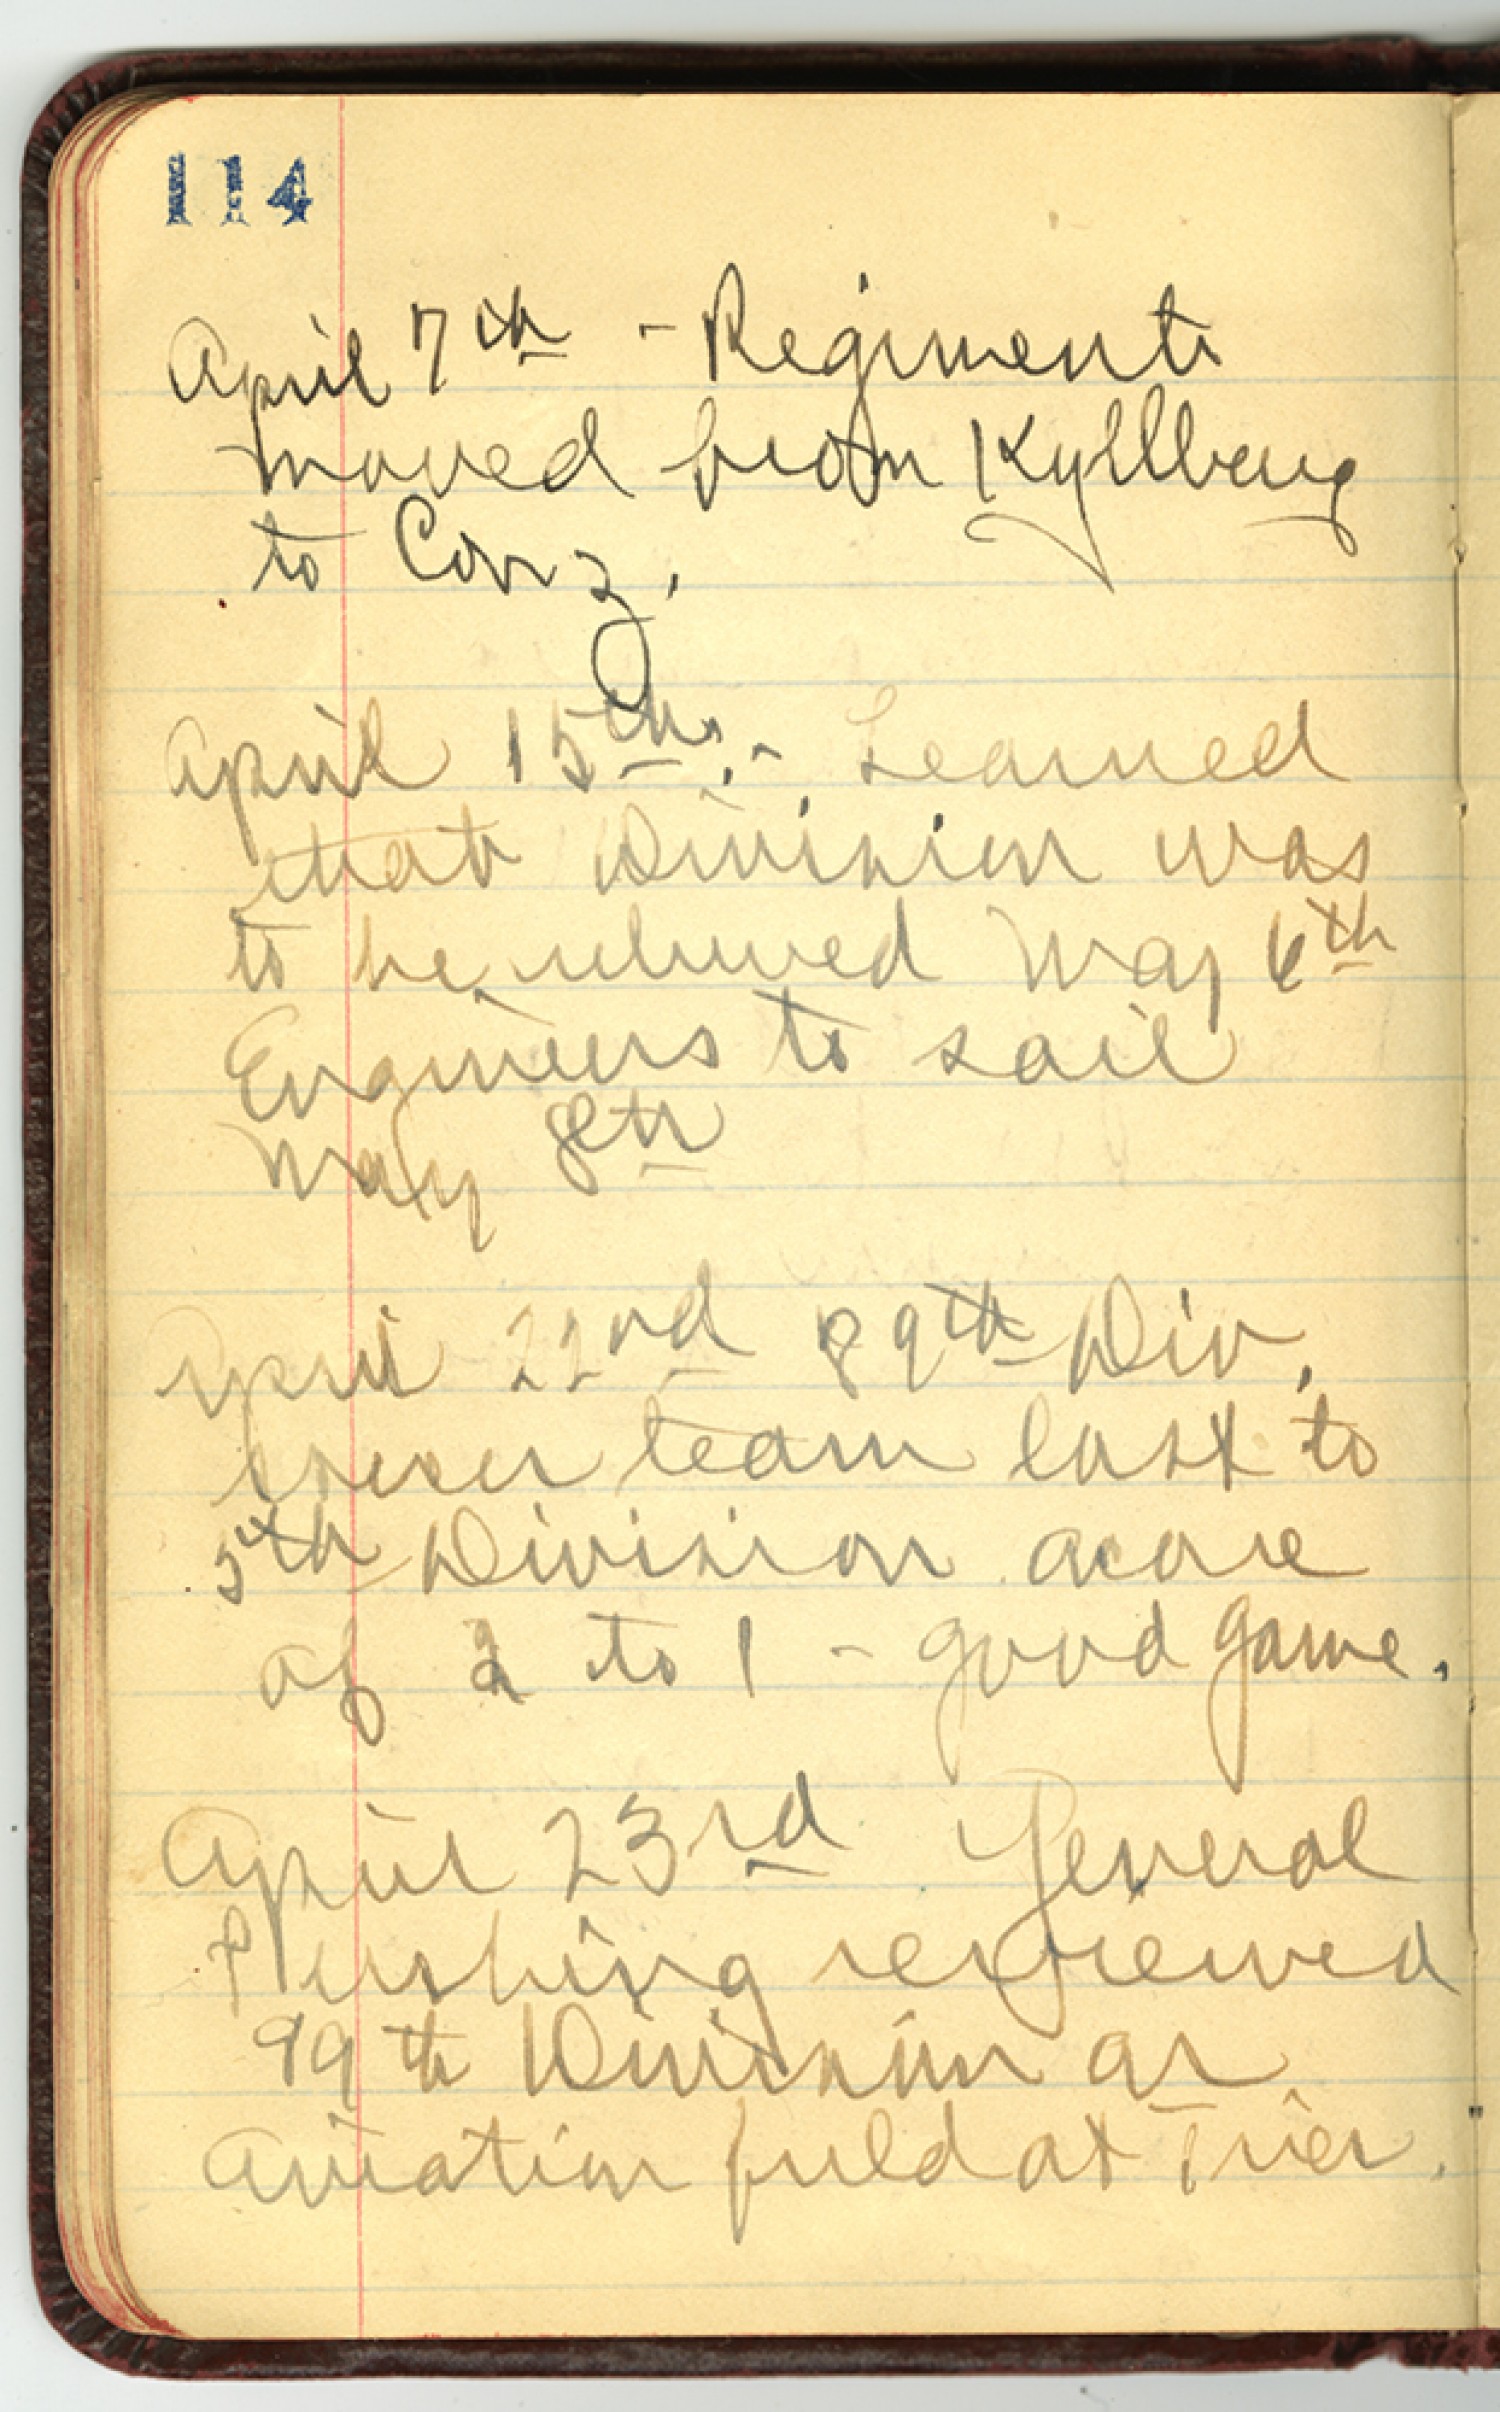 114
April 7th - Regiment
moved from Kyllburg
to Conz.
April 15th. - Learned
that Division was
to be relieved May 6th
Engineers to sail
May 8th
April 22nd 89th Div.
soccer team lost to
5th Division score
of 2 to 1 - good game.
April 23rd General
Pershing reviewed
89th Division at
Aviation field at Trier.